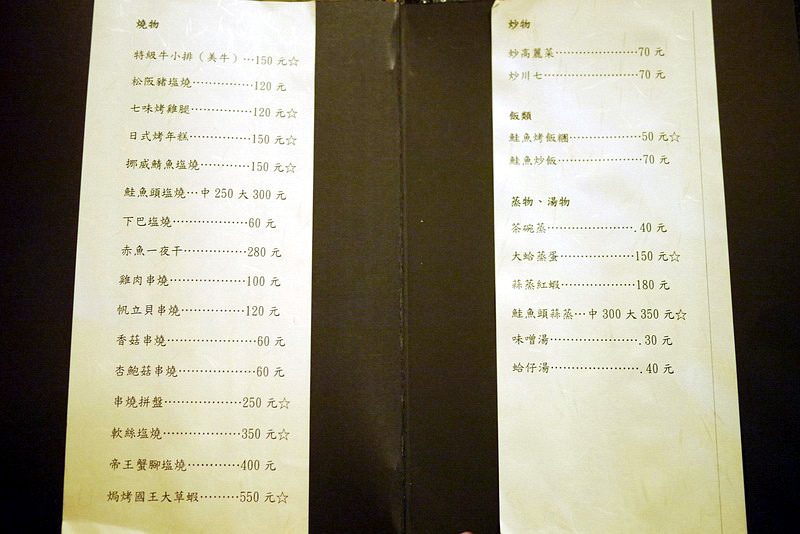 燒物
特級牛小排（美牛）⋯150 元☆
松阪豬塩燒⋯⋯⋯⋯120 元
七味烤雞腿⋯⋯⋯⋯120 元☆
日式烤年糕⋯⋯⋯⋯150 元☆
挪威鯖魚塩燒⋯⋯⋯150 元☆
鮭魚頭塩燒⋯中 250 大 300 元
下巴塩燒⋯⋯⋯⋯⋯60 元
赤魚一夜干⋯⋯⋯⋯280 元
雞肉串燒⋯⋯⋯⋯⋯100 元
帆立貝串燒⋯⋯⋯⋯120 元
香菇串燒⋯⋯⋯⋯⋯60 元
杏鮑菇串燒⋯⋯⋯⋯60 元
串燒拼盤⋯⋯⋯⋯⋯250 元☆
軟絲塩燒⋯⋯⋯⋯⋯350 元☆
帝王蟹腳塩燒⋯⋯⋯400 元
焗烤國王大草蝦⋯⋯550 元☆
炒物
炒高麗菜⋯⋯⋯⋯⋯70 元
炒川七⋯⋯⋯⋯⋯⋯70 元
飯類
鮭魚烤飯糰⋯⋯⋯⋯50 元☆
鮭魚炒飯⋯⋯⋯⋯⋯70 元
蒸物、湯物
茶碗蒸⋯⋯⋯⋯⋯.40 元
大蛤蒸蛋⋯⋯⋯⋯⋯150 元☆
蒜蒸紅蝦⋯⋯⋯⋯⋯180 元
鮭魚頭蒜蒸⋯中 300 大 350 元☆
味噌湯⋯⋯⋯⋯⋯.30 元
蛤仔湯⋯⋯⋯⋯⋯.40 元